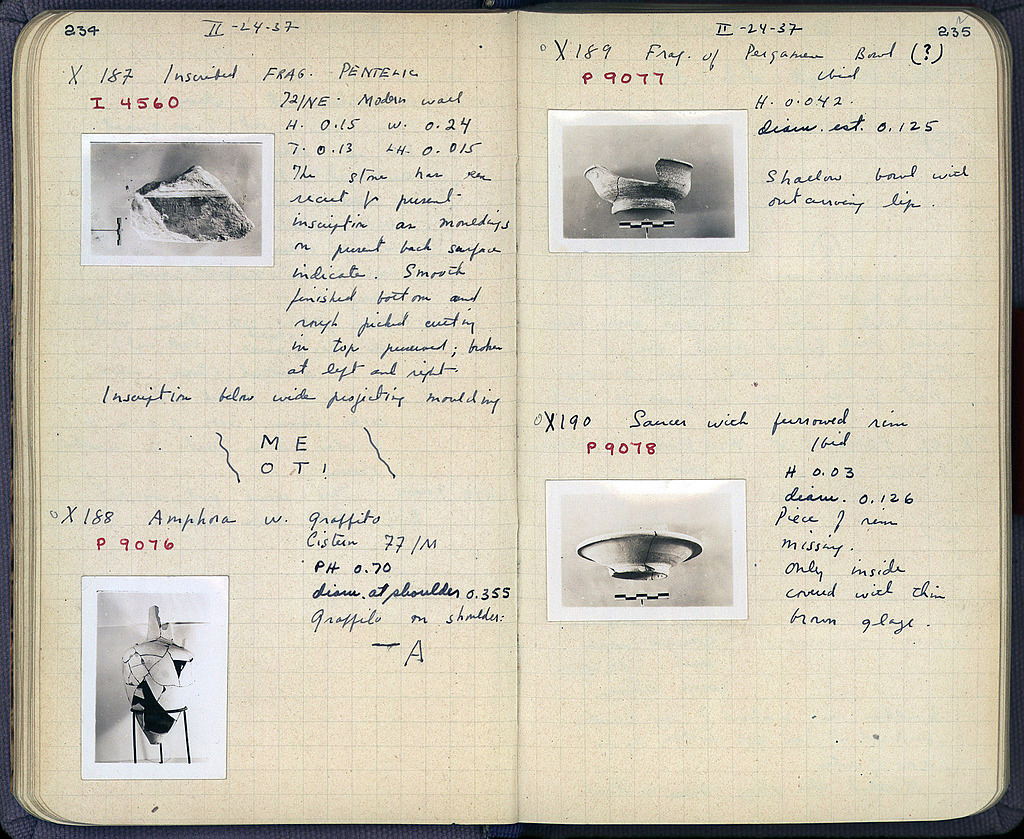 234
II-24-37
X 187 Inscribed FRAG. PENTELIC
I 4560
72/NE - Modern wall
H. 0.15 W. 0.24
T. 0.13 LH. 0.015
The stone has been
recut for present
inscription as mouldings
on present back surface
indicate. Smooth
finished bottom and
rough picked cutting
in top preserved; broken
at left and right.
Inscription below wide projecting moulding
M E
O T !
X 188 Amphora w. graffito
P 9076
Cistern 77/M
PH 0.70
diam. at shoulder 0.355
Graffito on shoulder:
— A
II-24-37
235
X 189 Frag. of Pergamene Bowl (?)
P 9077
Ibid
H. 0.042.
diam. est. 0.125
Shallow bowl with
outcurving lip.
X190 Saucer with furrowed rim
P 9078
Ibid
H 0.03
diam. 0.126
Piece of rim
missing.
Only inside
covered with thin
brown glaze.